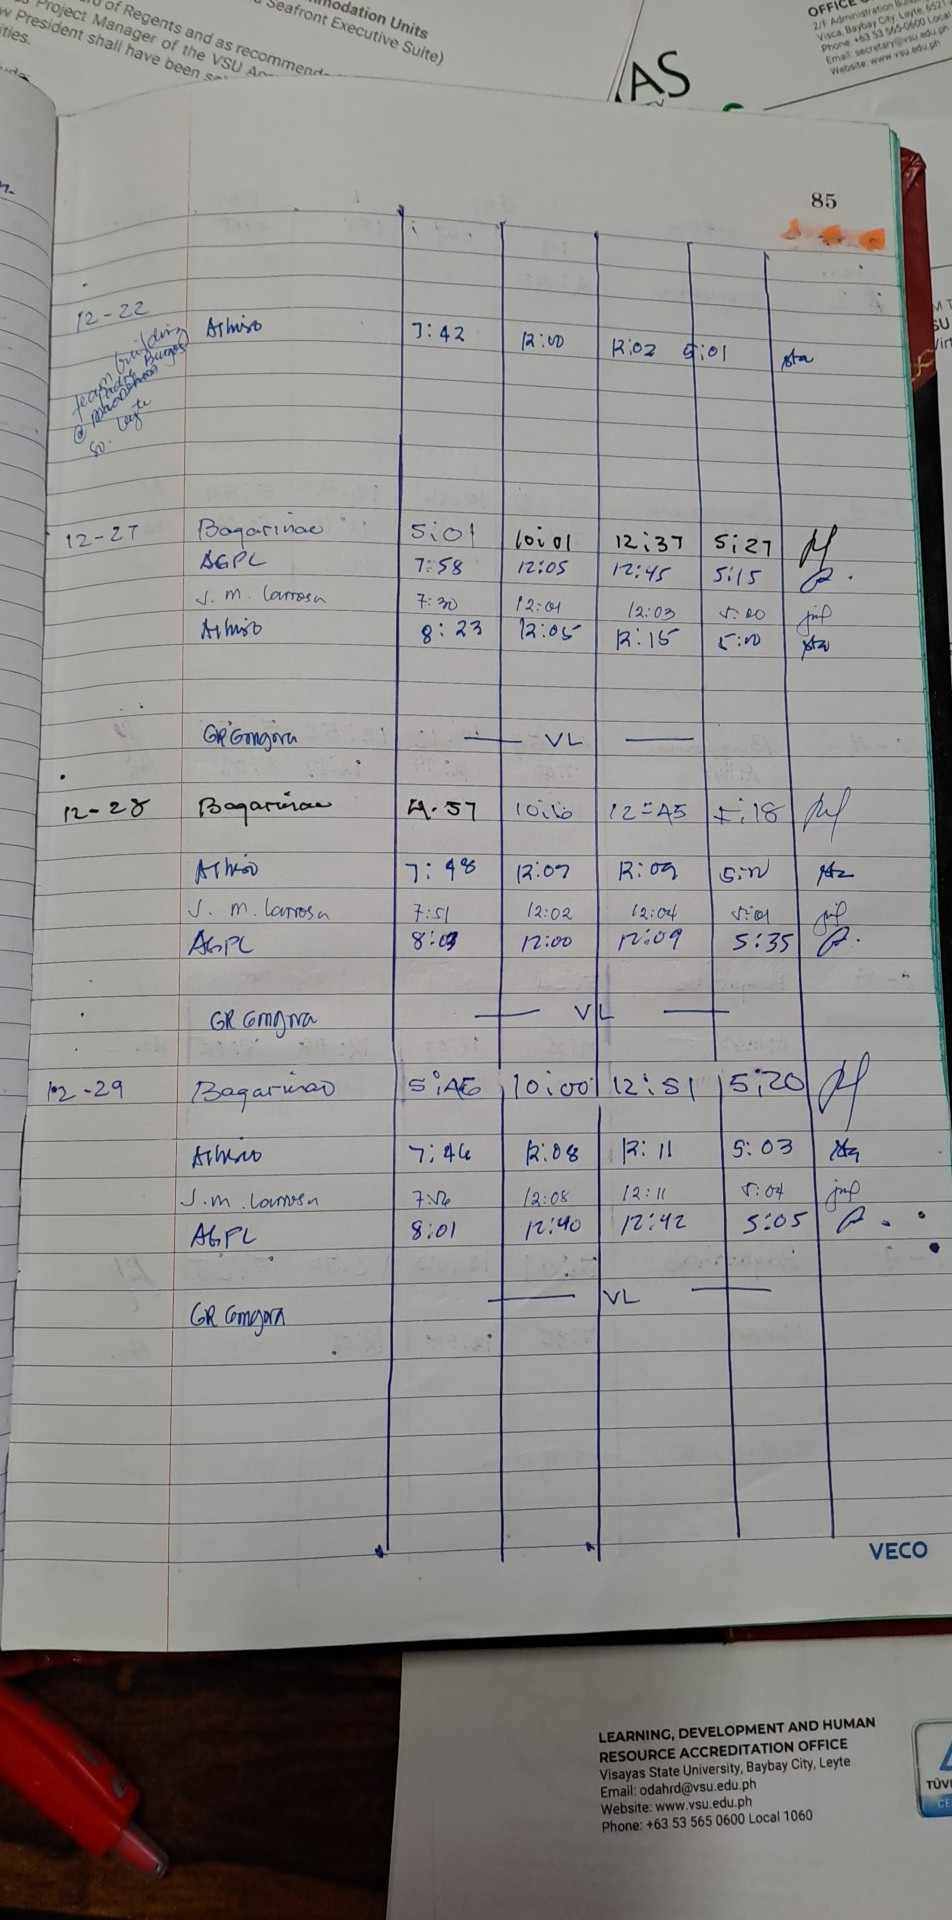 mmodation Units
d of Regents and as recommend
Seafront Executive Suite)
Project Manager of the VSU
w President shall have been
ties.
OFFICE
2/F Administration
Visca, Baybay City, Leyte, 6521
Phone: +63 53 565-0600
Email: secretary@vsu.edu.ph
Website: www.vsu.edu.ph
AS
85
12-22 7:42 12:00 12:02 5:01
team building
@
so. Leyte
12-27 Bagarinao 5:01 10:01 12:37 5:27
AGPL 7:58 12:05 12:45 5:15
J. M. Larrosa 7:30 12:01 12:03 5:00
8:23 12:05 12:15 5:00
GR Gongora — VL —
12-28 Bagarinao 4:57 12:45 5:18
7:48 12:07 12:09
J. M. Larrosa 7:51 12:02 12:04 5:01
AGPL 8:03 12:00 12:09 5:35
GR Gongora — VL —
12-29 Bagarinao 5:46 10:00 12:51 5:20
7:46 12:08 12:11 5:03
J. M. Larrosa 12:08 12:11 5:04
AGPL 8:01 12:40 12:42 5:05
GR Gongora — VL —
VECO
LEARNING, DEVELOPMENT AND HUMAN
RESOURCE ACCREDITATION OFFICE
Visayas State University, Baybay City, Leyte
Email: odahrd@vsu.edu.ph
Website: www.vsu.edu.ph
Phone: +63 53 565 0600 Local 1060
TÜV